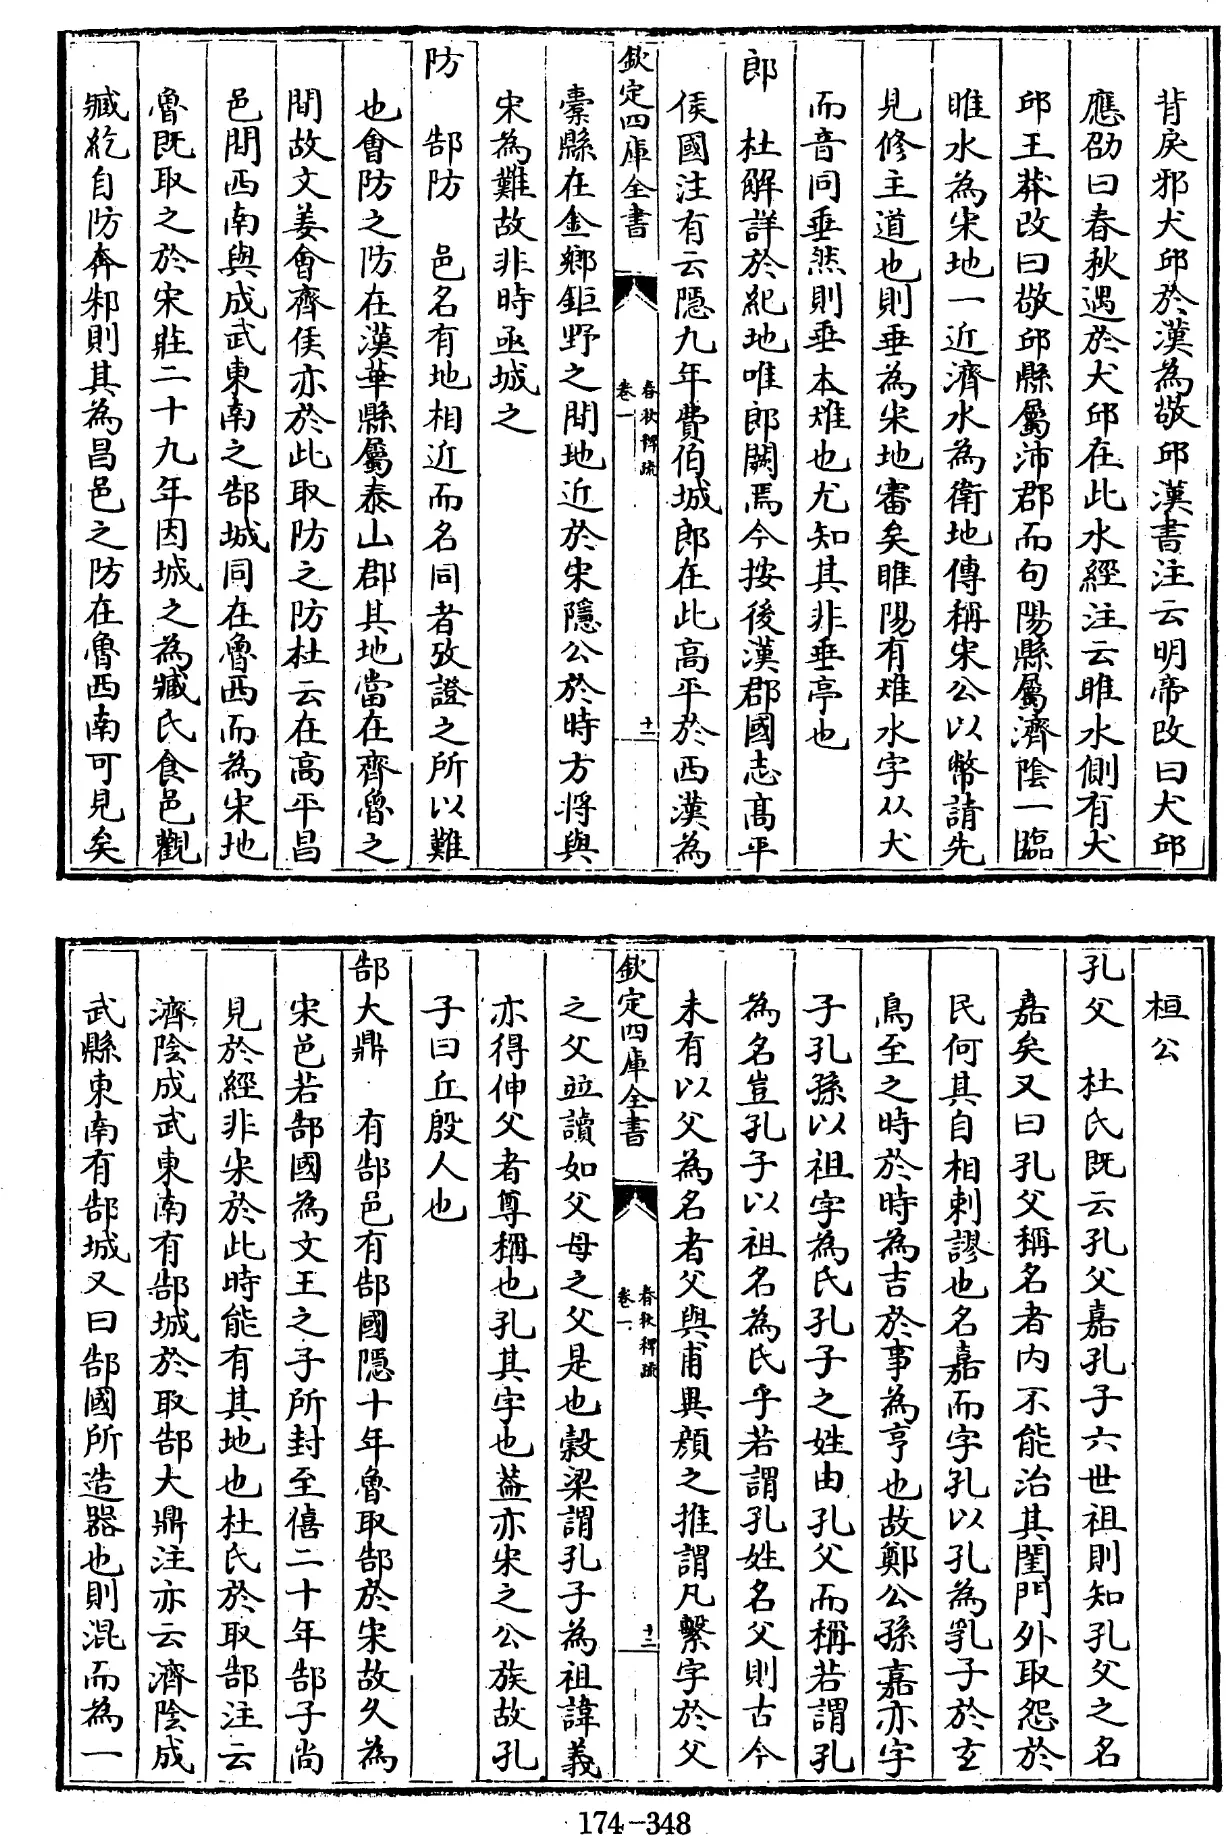 背戾邪犬邱於漢為敬邱漢書注云明帝改曰犬邱
應劭曰春秋遇於犬邱在此水經注云睢水側有犬
邱王莽改曰敬邱縣屬沛郡而句陽縣屬濟陰一臨
睢水為宋地一近濟水為衛地傳稱宋公以幣請先
見修主道也則垂為宋地審矣睢陽有㹥水字从犬
而音同垂然則垂本㹥也尤知其非垂亭也
郎　杜解詳於紀地唯郎闕焉今按後漢郡國志高平
侯國注有云隱九年費伯城郎在此高平於西漢為
欽定四庫全書　春秋稗疏卷一　十二
橐縣在金鄉鉅野之間地近於宋隱公於時方將與
宋為難故非時亟城之
防　郜防　邑名有地相近而名同者攷證之所以難
也會防之防在漢華縣屬泰山郡其地當在齊魯之
間故文姜會齊侯亦於此取防之防杜云在高平昌
邑間西南與成武東南之郜城同在魯西而為宋地
魯既取之於宋莊二十九年因城之為臧氏食邑觀
臧紇自防奔邾則其為昌邑之防在魯西南可見矣
桓公
孔父　杜氏既云孔父嘉孔子六世祖則知孔父之名
嘉矣又曰孔父稱名者内不能治其閨門外取怨於
民何其自相刺謬也名嘉而字孔以孔為乳子於玄
鳥至之時於時為吉於事為亨也故鄭公孫嘉亦字
子孔孫以祖字為氏孔子之姓由孔父而稱若謂孔
為名豈孔子以祖名為氏乎若謂孔姓名父則古今
未有以父為名者父與甫異顏之推謂凡繫字於父
欽定四庫全書　春秋稗疏卷一　十三
之父竝讀如父母之父是也穀梁謂孔子為祖諱義
亦得伸父者尊稱也孔其字也葢亦宋之公族故孔
子曰丘殷人也
郜大鼎　有郜邑有郜國隱十年魯取郜於宋故久為
宋邑若郜國為文王之子所封至僖二十年郜子尚
見於經非宋於此時能有其地也杜氏於取郜注云
濟陰成武東南有郜城於取郜大鼎注亦云濟陰成
武縣東南有郜城又曰郜國所造器也則混而為一
174-348